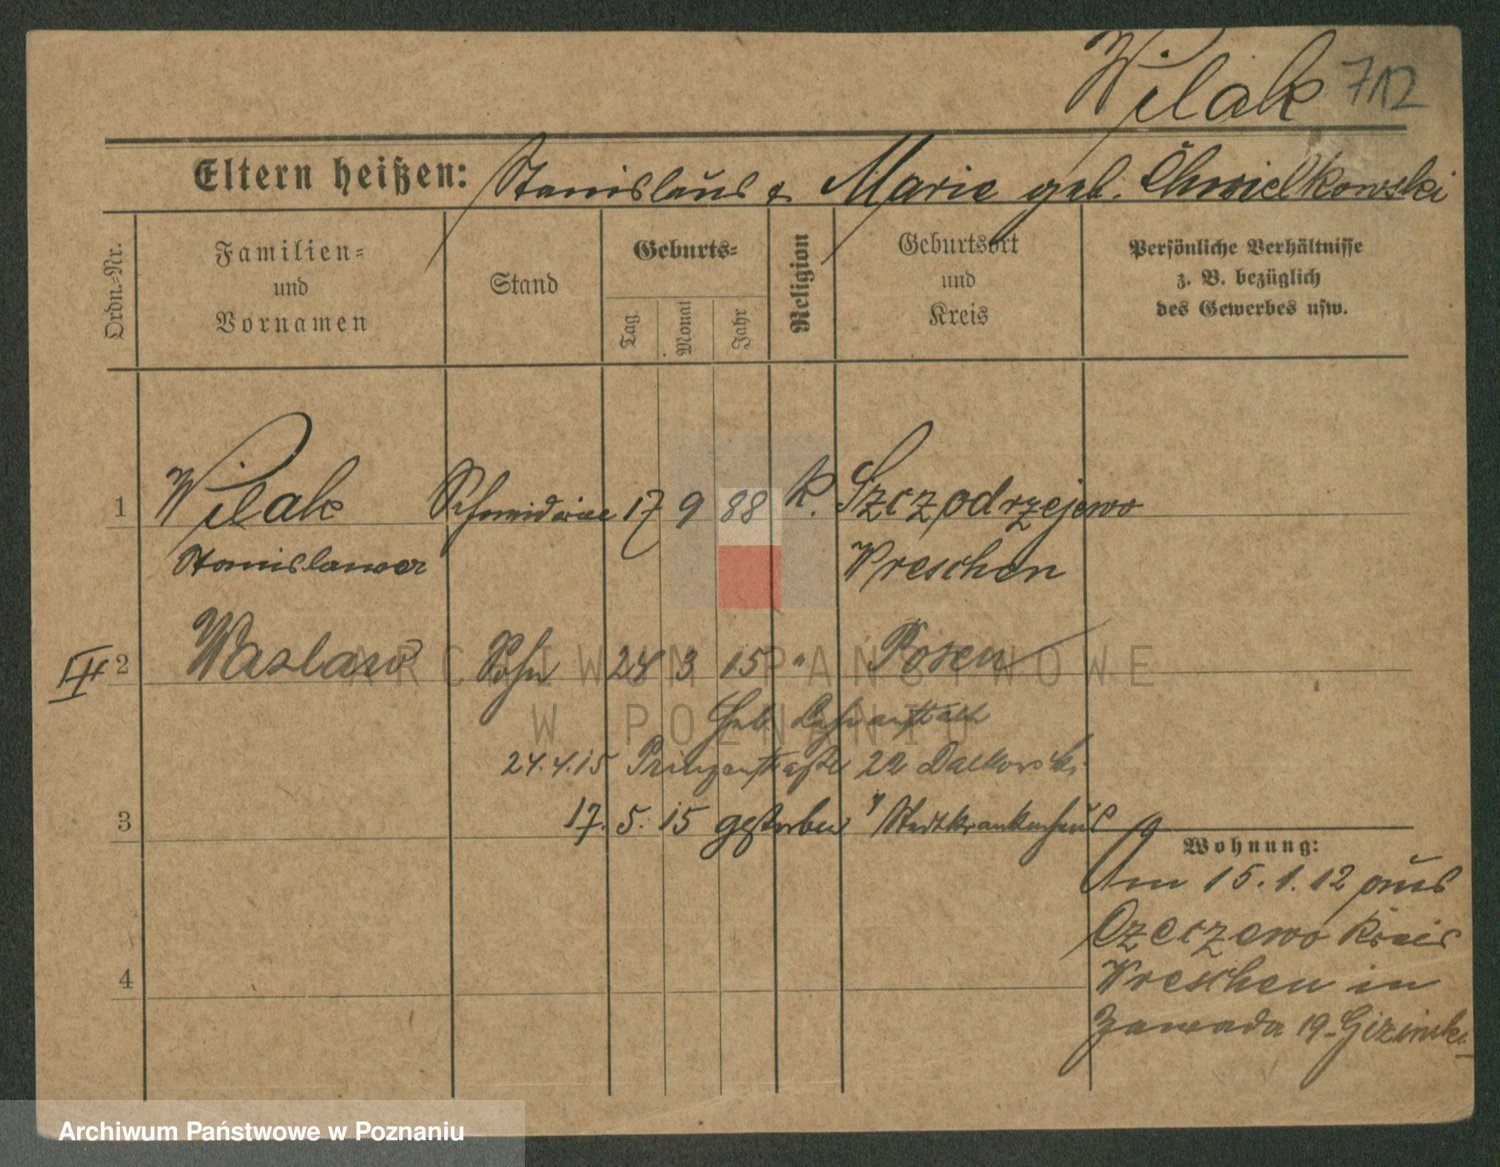 Wilak 712
Eltern heißen: Stanislaus & Marie geb. Chwielkowski
Ordn.-Nr.
Familien-
und
Vornamen
Stand
Geburts-
Tag
Monat
Jahr
Religion
Geburtsort
und
Kreis
Persönliche Verhältnisse
z. B. bezüglich
des Gewerbes usw.
1 Wilak Schneiderin 17 9 88 k. Szczodrzejewo
Stanislawa Wreschen
III 2 Waslaw Sohn 28 3 15 " Posen
ARCHIWUM PAŃSTWOWE
W POZNANIU
Heb. Lehranstalt
24.4.15 Prinzenstraße 22 Dalkowski
3 17. 5. 15 gestorben Stadtkrankenhaus
Wohnung:
Am 15.1.12 aus
Czeczewo Kreis
Wreschen in
4
Zawada 19 - Gizinski
Archiwum Państwowe w Poznaniu